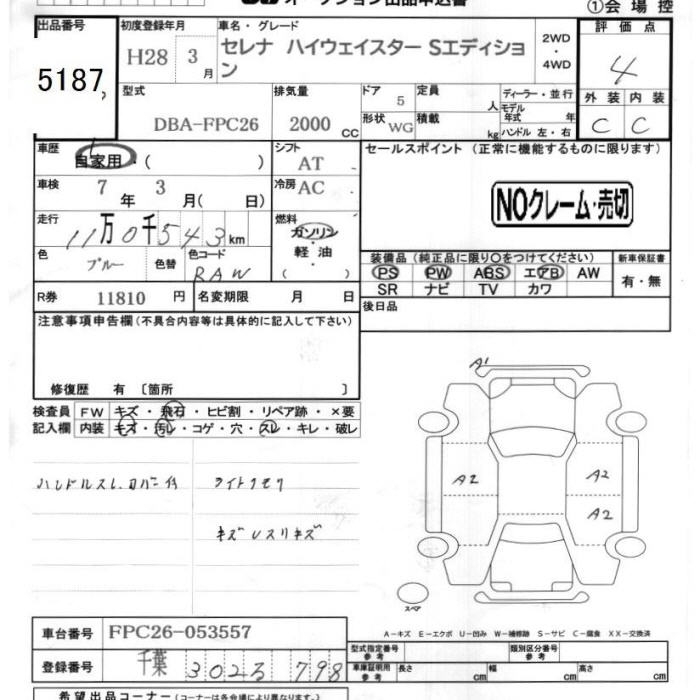 オークション出品申込書
①会場控
出品番号
5187
初度登録年月
H28 3月
車名・グレード
セレナ ハイウェイスター Sエディション
2WD・4WD
評価点
4
外装 内装
C C
型式
DBA-FPC26
排気量
2000 CC
ドア 5
形状 WG
定員 人
積載 kg
ディーラー・並行
モデル年式 年式
ハンドル 左・右
車歴 自家用・( )
シフト AT
車検 7年 3月( 日)
冷房 AC
走行 11万0千543km
燃料 ガソリン・軽油・( )
色 ブルー
色替
色コード RAW
R券 11810 円
名変期限 月 日
セールスポイント (正常に機能するものに限ります)
NOクレーム・売切
装備品 (純正品に限り○をつけてください)
PS PW ABS エアB AW
SR ナビ TV カワ
新車保証書
有・無
後日品
注意事項申告欄 (不具合内容等は具体的に記入して下さい)
修復歴 有 〔箇所 〕
検査員記入欄
FW キズ・飛石・ヒビ割・リペア跡・×要
内装 キズ・汚レ・コゲ・穴・スレ・キレ・破レ
ハンドルスレ、カバー付
ライトクモリ
キズ Uスリキズ
A1
A2
A2
A2
スペア
A-キズ E-エクボ U-凹み W-補修跡 S-サビ C-腐食 XX-交換済
車台番号 FPC26-053557
登録番号 千葉 302 る 798
型式指定番号 参考
類別区分番号 参考
車庫証明用 参考 長さ cm 幅 cm 高さ cm
希望出品コーナー (コーナーは各会場により異なります。)